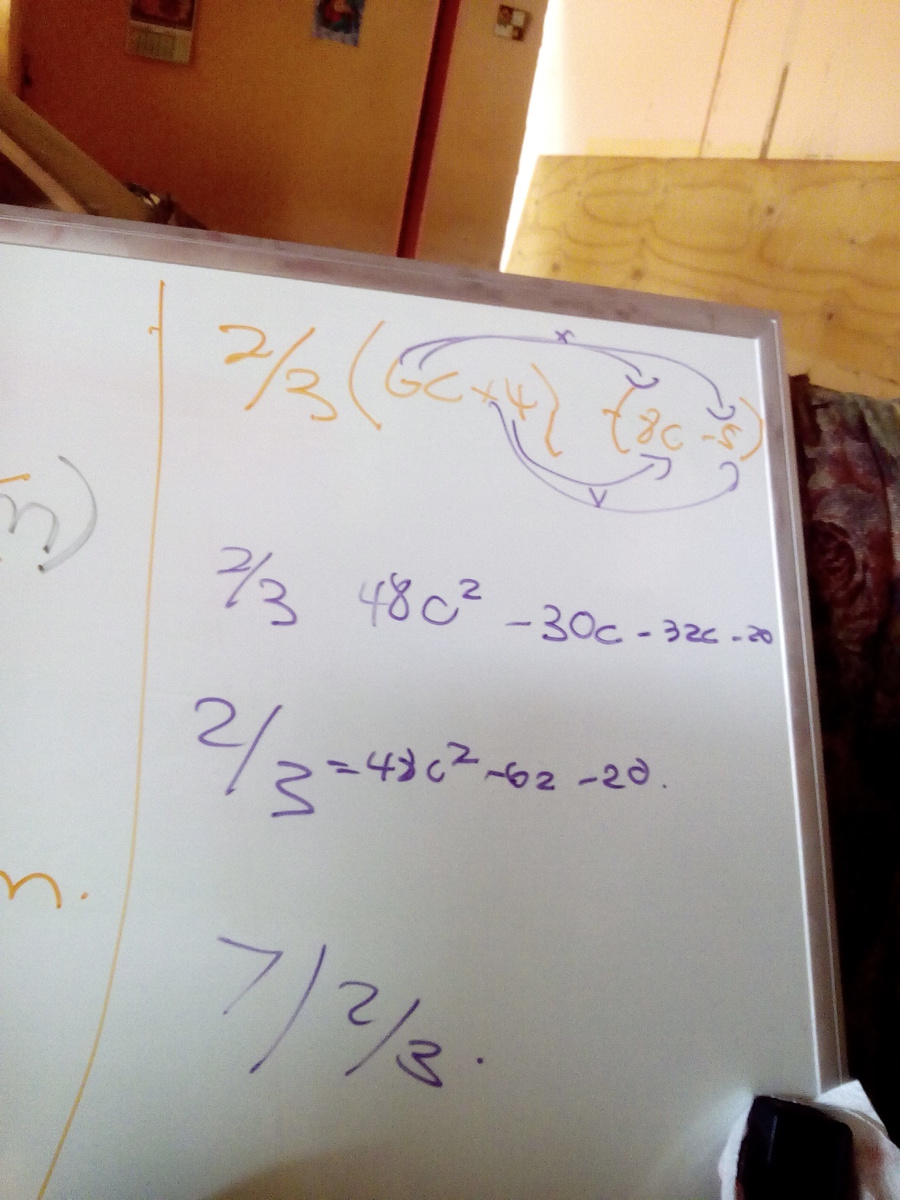 2/3 (6c+4) -(8c -5)
n)
2/3 48c² -30c - 32c -20
2/3 = 48c² -62 -20.
n.
7) 2/3.